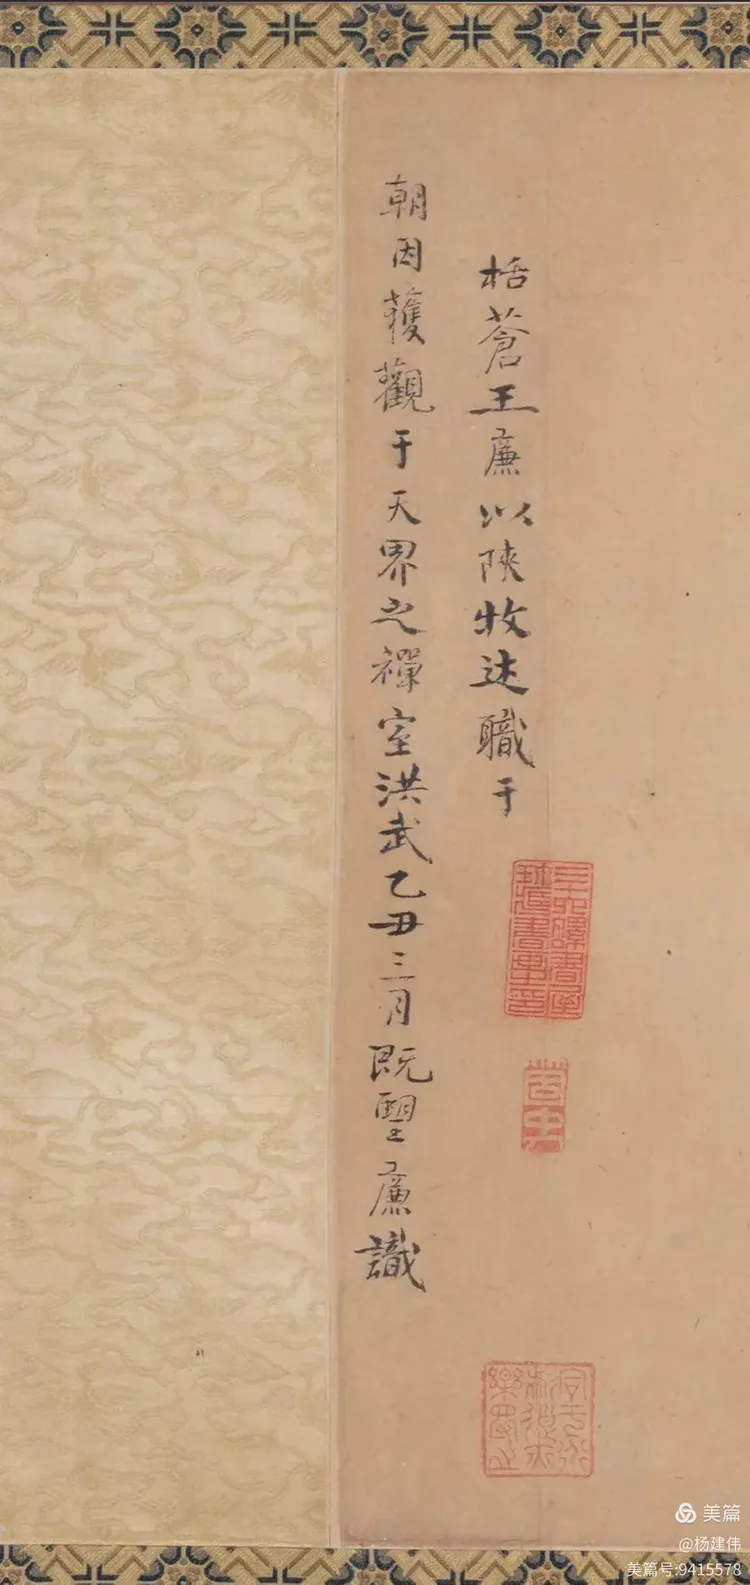 栝蒼王廉以陝牧述職于
朝因獲觀于天界之禪室洪武乙丑三月既朢廉識
美篇
@杨建伟
美篇号:9415578